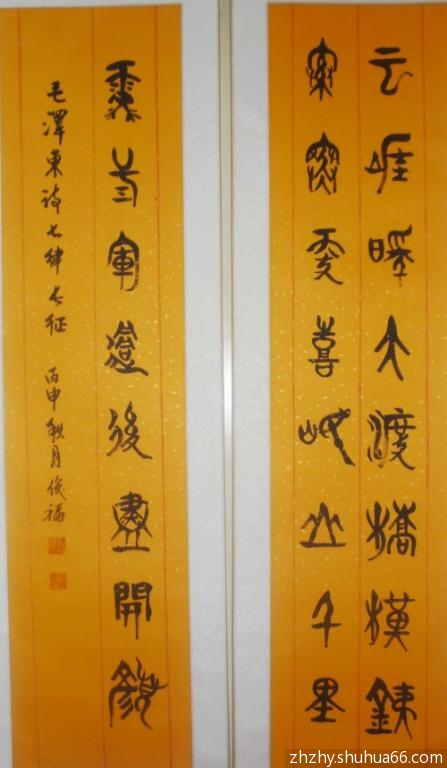 云崖暖大渡橋橫銕
索寒更喜岷山千里
雪三軍過後盡開顏
毛澤東詩七律長征 丙申秋月俊福
zhzhy.shuhua66.com